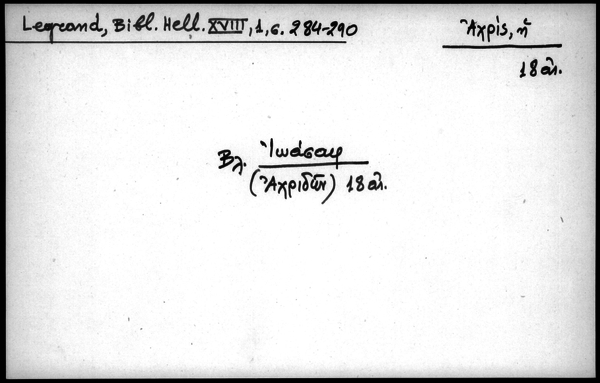 Legrand, Bibl. Hell. XVIII, 1, σ. 284-290
Ἀχρίς, ἡ
18 αἰ.
Βλ. Ἰωάσαφ
(Ἀχριδῶν) 18 αἰ.